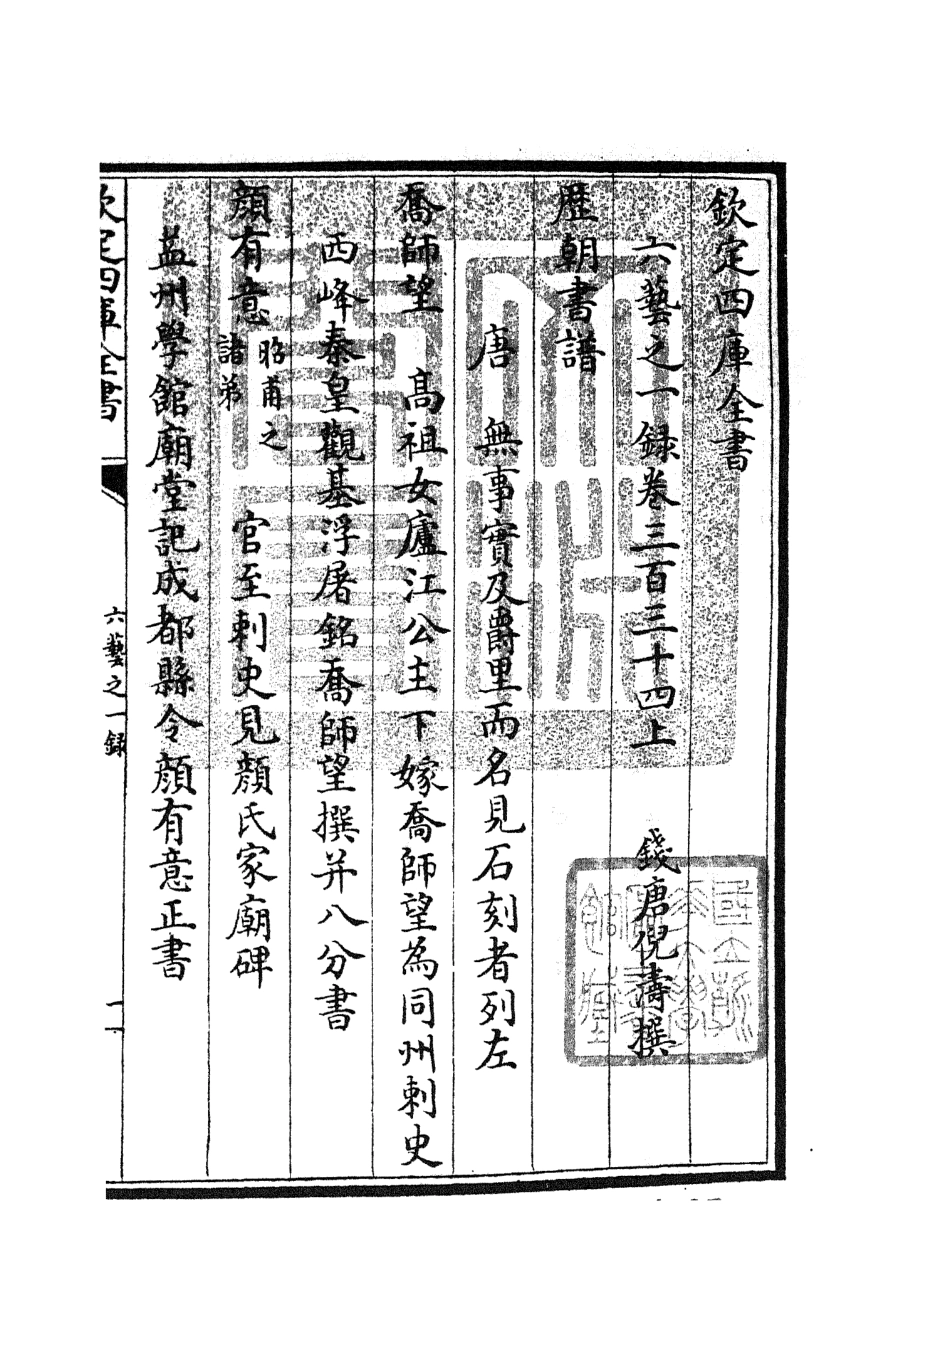 欽定四庫全書
六藝之一録卷三百三十四上
錢唐倪濤撰
歴朝書譜
唐 無事實及爵里而名見石刻者列左
喬師望 髙祖女廬江公主下嫁喬師望為同州刺史
西峰秦皇觀基浮屠銘喬師望撰并八分書
顔有意 昭甫之諸弟 官至刺史見顔氏家廟碑
益州學館廟堂記成都縣令顔有意正書
欽定四庫全書
六藝之一録
一